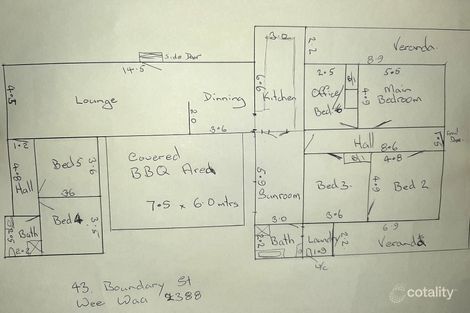 Side Door
14.5
4.5
Lounge
Dinning
2.0
3.6
3.0
6.6
Kitchen
2.2
8.9
Veranda
2.5
Office
Bed 6
4.9
5.5
Main
Bedroom
Hall
8.6
1.5
1.2
4.8
Hall
Bed 5
3.6
3.6
Bed 4
3.5
Bath
2.2
Covered
BBQ Area
7.5 x 6.0 mtrs
5.9
Sunroom
3.0
Bed 3
3.6
4.9
4.8
Bed 2
6.9
2.2
Bath
Laundry
1.9
2.2
Veranda
43. Boundary St
Wee Waa 2388
cotality